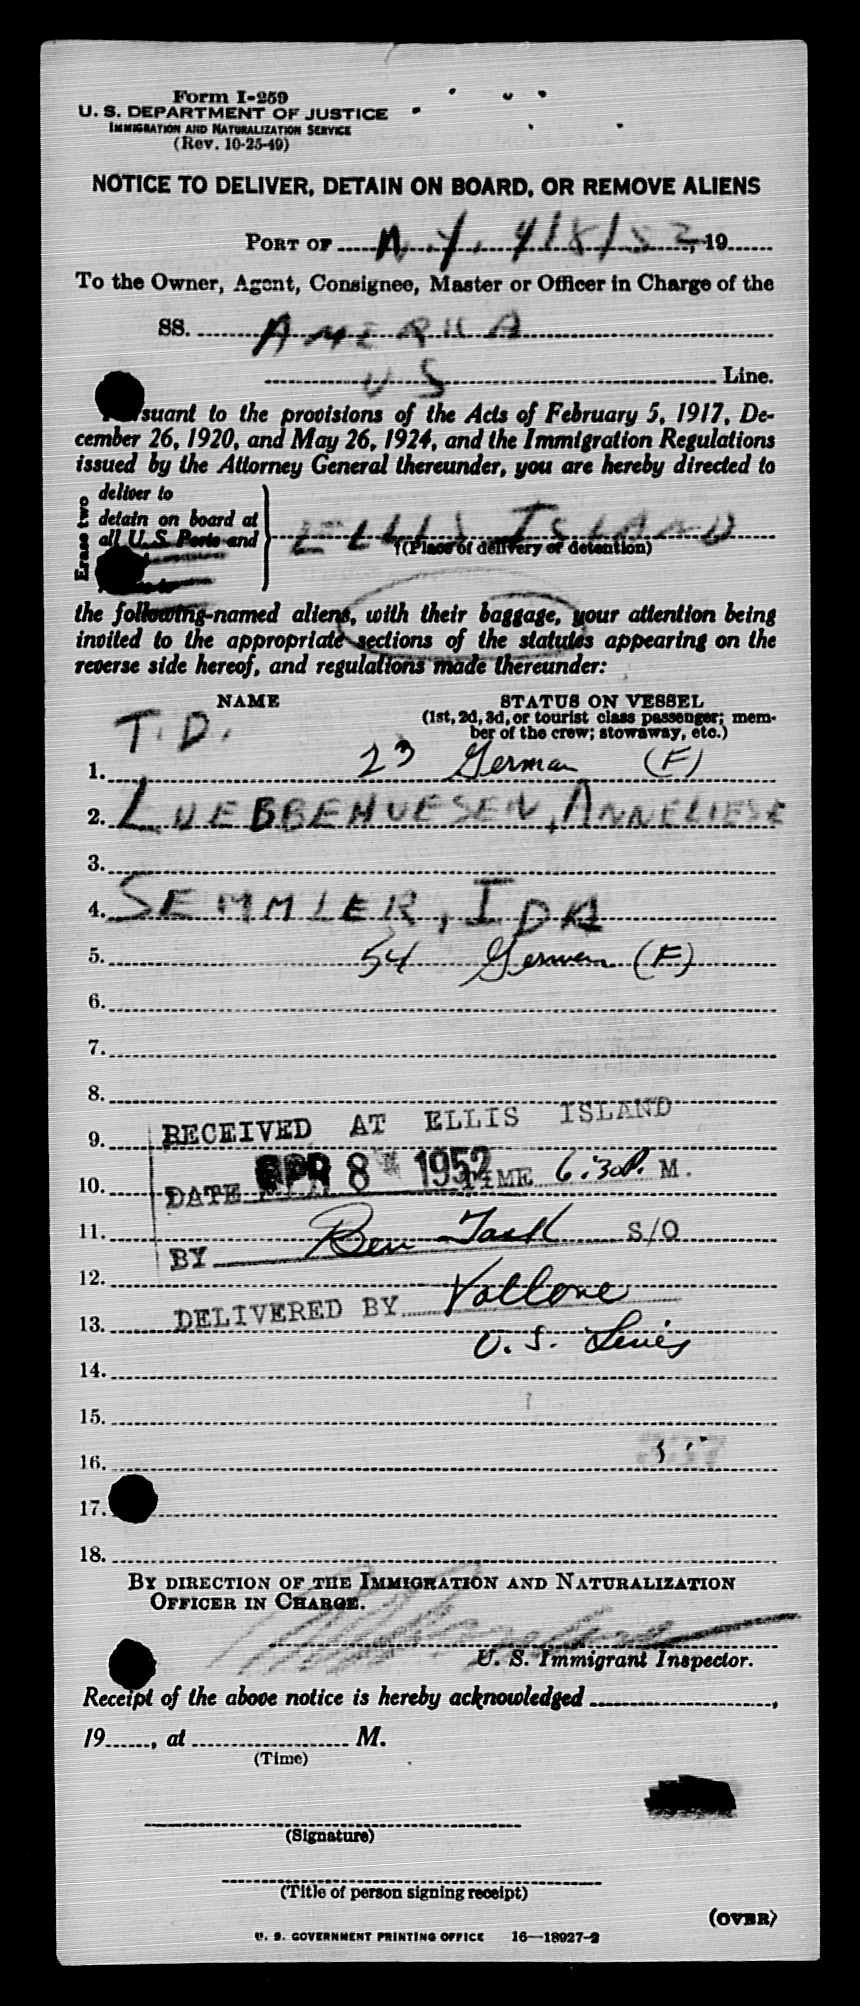 Form I-259
U. S. DEPARTMENT OF JUSTICE
IMMIGRATION AND NATURALIZATION SERVICE
(Rev. 10-25-49)
NOTICE TO DELIVER, DETAIN ON BOARD, OR REMOVE ALIENS
PORT OF N.Y. 4/8/52, 19
To the Owner, Agent, Consignee, Master or Officer in Charge of the
SS. AMERICA
US Line.
suant to the provisions of the Acts of February 5, 1917, De-
cember 26, 1920, and May 26, 1924, and the Immigration Regulations
issued by the Attorney General thereunder, you are hereby directed to
Erase two
deliver to
detain on board at
all U.S. Ports and
ELLIS ISLAND
(Place of delivery or detention)
the following-named aliens, with their baggage, your attention being
invited to the appropriate sections of the statutes appearing on the
reverse side hereof, and regulations made thereunder:
NAME STATUS ON VESSEL
(1st, 2d, 3d, or tourist class passenger; mem-
ber of the crew; stowaway, etc.)
T.D.
1. 23 German (F)
2. LUEBBEHUESEN, ANNELIESE
3.
4. SEMMLER, IDA
5. 54 German (F)
6.
7.
8.
RECEIVED AT ELLIS ISLAND
9.
10. DATE APR 8 1952 TIME 6:30 P. M.
11. BY Ben Tash S/O
12.
13. DELIVERED BY Vallone
U. S. Lines
14.
15.
16. 337
17.
18.
BY DIRECTION OF THE IMMIGRATION AND NATURALIZATION
OFFICER IN CHARGE.
U. S. Immigrant Inspector.
Receipt of the above notice is hereby acknowledged ,
19 , at M.
(Time)
(Signature)
(Title of person signing receipt)
(OVER)
U. S. GOVERNMENT PRINTING OFFICE 16—18927-2